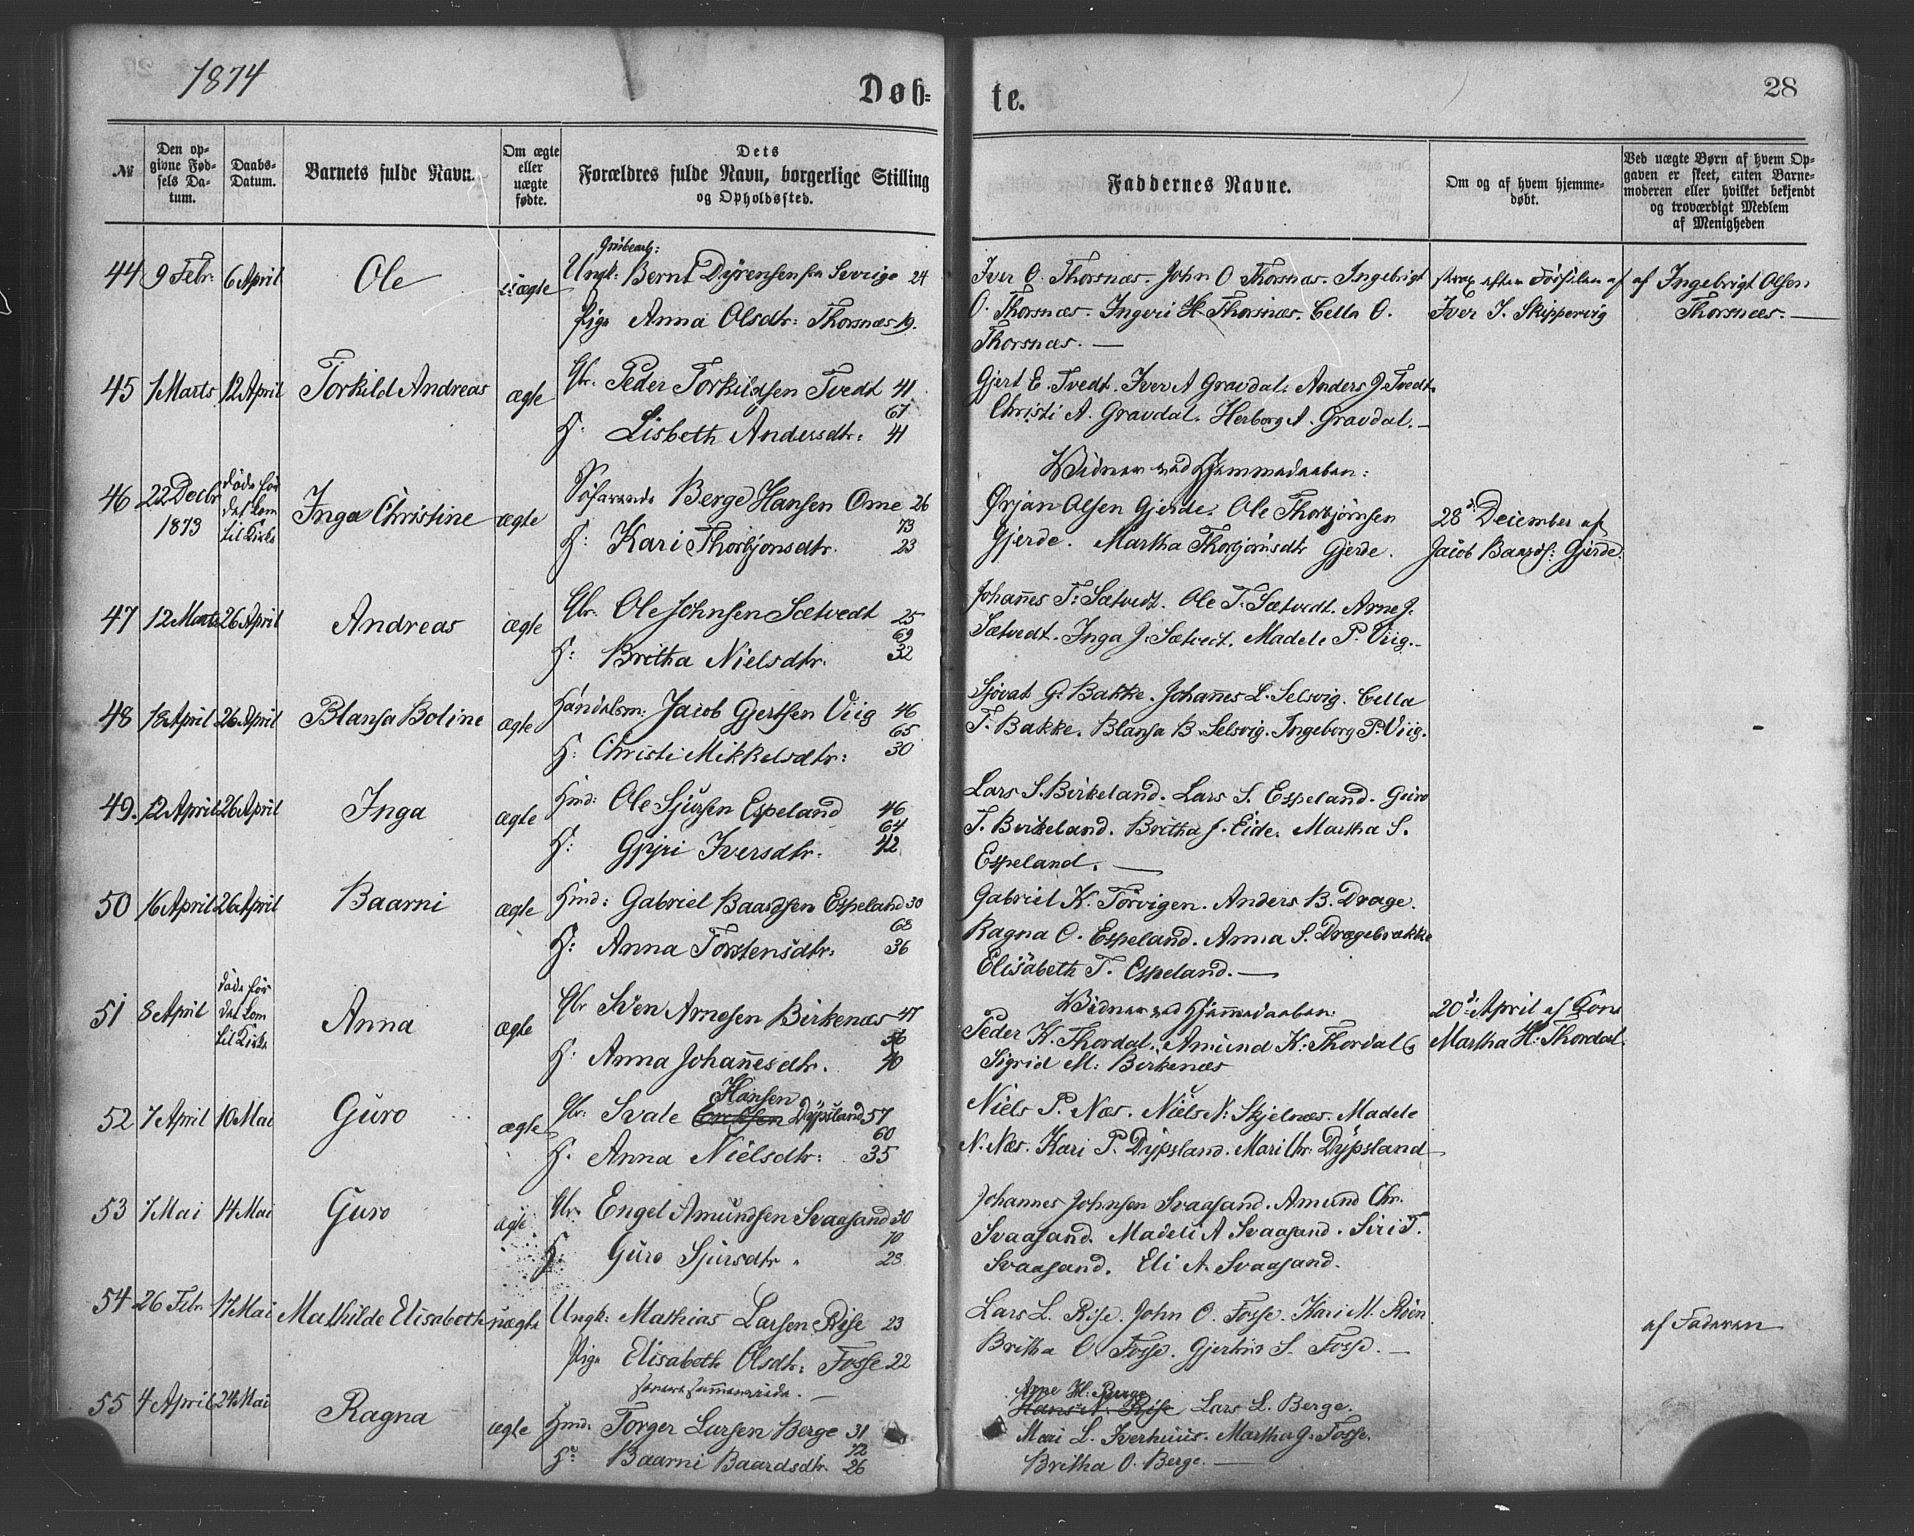 1874
Døb=
te.
28
№
Den op-
givne Fød-
sels Da-
tum.
Daabs-
Datum.
Barnets fulde Navn.
Om ægte
eller
uægte
fødte.
Dets
Forældres fulde Navn, borgerlige Stilling
og Opholdssted.
Faddernes Navne.
Om og af hvem hjemme-
døbt.
Ved uægte Børn af hvem Op-
gaven er skeet, enten Barne-
moderen eller hvilket bekjendt
og troværdigt Medlem
af Menigheden
44 9 Febr. 6 April Ole uægte
Grubearb:
Ungk: Bernt Dyrensen fra Sverige 24
Pige Anna Olsdtr: Thorsnæs 19.
Iver O. Thorsnæs. John O Thorsnæs. Ingebrigt
O. Thorsnæs. Ingeri H. Thorsnæs. Cella O.
Thorsnæs. —
strax efter Fødselen af
Iver J. Skippervig
af Ingebrigt Olsen
Thorsnæs. —
45 1 Marts 12 April Torkild Andreas ægte
Gbr. Peder Torkildsen Tvedt 41
67
H: Lisbeth Andersdtr: 41
Gjert E. Tvedt. Iver A Gravdal. Anders J. Tvedt.
Christi A. Gravdal. Herborg A. Gravdal. —
46 22 Decbr 1873
døde før
det kom
til Kirke
Inga Christine ægte
Søfarende Berge Hansen Ome 26
73
H: Kari Thorbjonsdtr. 23
Vidner ved Hjemmedaaben:
Ørjan Olsen Gjerde. Ole Thorbjørnsen
Gjerde. Martha Thorbjørnsdtr Gjerde.
28 December af
Jacob Baards: Gjerde.
47 12 Marts 26 April Andreas ægte
Gbr. Ole Johnsen Sætvedt 25
69
H: Britha Nielsdtr. 32
Johan̄es T: Sætvedt. Ole T. Sætvedt. Arne J.
Sætvedt. Inga J. Sætvedt. Madele P. Viig. -
48 18 April 26 April Blansa Boline ægte
Jacob Gjertsen Viig 46
65
H: Christi Mikkelsdtr: 30
Sjovat G. Bakke. Johan̄es L. Selsvig. Cella
T. Bakke. Blansa B. Selsvig. Ingeborg P. Viig.
49. 12 April 26 April Inga ægte
Hmd: Ole Sjursen Espeland 46
64
H: Gjyri Iversdtr. 42
Lars S. Birkeland. Lars S. Espeland. Guro
T. Birkeland. Britha J. Eide. Martha S.
Espeland. —
50 16 April 26 April Baarni ægte
Hmd: Gabriel Baardsen Espeland 30
68
H: Anna Torstensdtr. 36
Gabriel K. Tørvigen. Anders B. Drage.
Ragna O. Espeland. Anna S. Dragebrække
Elisabeth T. Espeland. —
51 8 April
døde før
det kom
til Kirke
Anna ægte
Gbr Sven Arnesen Birkenæs 47
H: Anna Johan̄esdtr. 40
Vidner ved Hjemmedaaben:
Peder K. Thordal. Amund K. Thordal
Sigrid M. Birkenæs
20 April af Kone
Martha H. Thordal.
52 7 April 10 Mai Guro ægte
Hansen
Gbr: Svale Dypsland 57
60
H. Anna Nielsdtr: 35
Niels P. Næs. Niels N: Skjelnæs. Madele
N. Næs. Kari P. Dypsland. Mari Chr: Dypsland
53 7 Mai 14 Mai Guro ægte
Gbr. Engel Amundsen Svaasand 30
70
H: Guro Sjursdtr. 23
Johannes Johnsen Svaasand. Amund Chr.
Svaasand. Madeli A Svaasand. Siri T.
Svaasand. Eli A. Svaasand.
54 26 Febr. 17 Mai Mathilde Elisabeth uægte
Ungk: Mathias Larsen Rise 23
Pige Elisabeth Olsdtr: Fosse 22
Lars L. Rise. John O. Fosse. Kari M. Røen
Britha O. Fosse. S. Fosse. —
af Faderen
55 4 April 24 Mai Ragna ægte
Hmd: Torger Larsen Berge 31
72
H: Baarni Baardsdtr. 26
Arne H. Berge
Hans N. Rise Lars L. Berge.
Mari L. Iverhuus. Martha J. Fosse.
Britha O. Berge. —